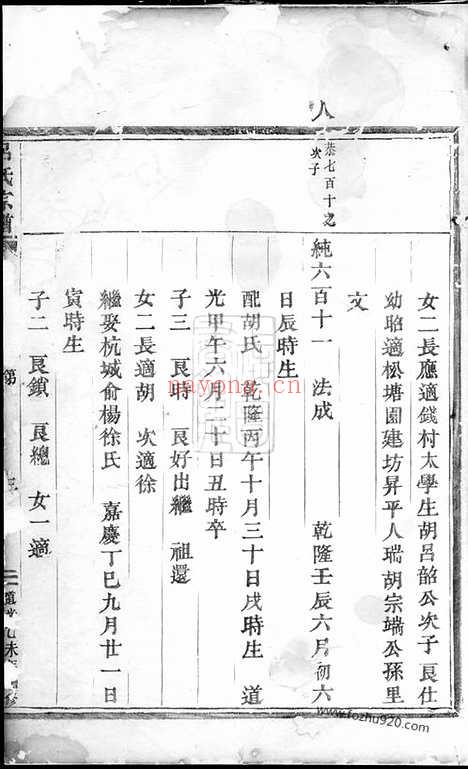 女二長應適錢村太學生胡呂韶公次子 良仕
幼昭適松塘園建坊昇平人瑞胡宗端公孫里
文
八
恭七百十之
次子
純六百十一 法成 乾隆壬辰六月初六
日辰時生
配胡氏 乾隆丙午十月三十日戌時生 道
光甲午六月二十日丑時卒
子三 良時 良好出繼 祖還
女二長適胡 次適徐
繼娶杭城俞楊徐氏 嘉慶丁巳九月廿一日
寅時生
子二 良鎖 良總 女一適
呂氏宗譜
第
三
nayong.cn
www.fozhu920.com